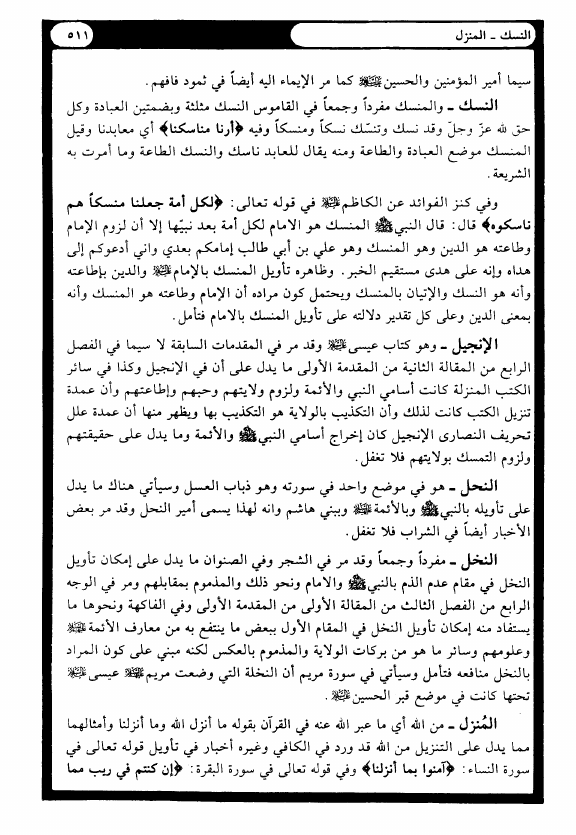 النسك ـ المنزل
٥١١
سيما أمير المؤمنين والحسين ﷺ كما مر الإيماء اليه أيضاً في ثمود فافهم.
النسك ـ والمنسك مفرداً وجمعاً في القاموس النسك مثلثة وبضمتين العبادة وكل
حق لله عزّ وجلّ وقد نسك وتنسّك نسكاً ومنسكاً وفيه ﴿أرنا مناسكنا﴾ أي معابدنا وقيل
المنسك موضع العبادة والطاعة ومنه يقال للعابد ناسك والنسك الطاعة وما أمرت به
الشريعة.
وفي كنز الفوائد عن الكاظم ﷺ في قوله تعالى: ﴿لكل أمة جعلنا منسكاً هم
ناسكوه﴾ قال: قال النبي ﷺ المنسك هو الامام لكل أمة بعد نبيّها إلا أن لزوم الإمام
وطاعته هو الدين وهو المنسك وهو علي بن أبي طالب إمامكم بعدي واني أدعوكم إلى
هداه وإنه على هدى مستقيم الخبر. وظاهره تأويل المنسك بالإمام ﷺ والدين بإطاعته
وأنه هو النسك والإتيان بالمنسك ويحتمل كون مراده أن الإمام وطاعته هو المنسك وأنه
بمعنى الدين وعلى كل تقدير دلالته على تأويل المنسك بالامام فتأمل.
الإنجيل ـ وهو كتاب عيسى ﷺ وقد مر في المقدمات السابقة لا سيما في الفصل
الرابع من المقالة الثانية من المقدمة الأولى ما يدل على أن في الإنجيل وكذا في سائر
الكتب المنزلة كانت أسامي النبي والأئمة ولزوم ولايتهم وحبهم وإطاعتهم وأن عمدة
تنزيل الكتب كانت لذلك وأن التكذيب بالولاية هو التكذيب بها ويظهر منها أن عمدة علل
تحريف النصارى الإنجيل كان إخراج أسامي النبي ﷺ والأئمة وما يدل على حقيقتهم
ولزوم التمسك بولايتهم فلا تغفل.
النحل ـ هو في موضع واحد في سورته وهو ذباب العسل وسيأتي هناك ما يدل
على تأويله بالنبي ﷺ وبالأئمة ﷺ وببني هاشم وانه لهذا يسمى أمير النحل وقد مر بعض
الأخبار أيضاً في الشراب فلا تغفل.
النخل ـ مفرداً وجمعاً وقد مر في الشجر وفي الصنوان ما يدل على إمكان تأويل
النخل في مقام عدم الذم بالنبي ﷺ والامام ونحو ذلك والمذموم بمقابلهم ومر في الوجه
الرابع من الفصل الثالث من المقالة الأولى من المقدمة الأولى وفي الفاكهة ونحوها ما
يستفاد منه إمكان تأويل النخل في المقام الأول ببعض ما ينتفع به من معارف الأئمة ﷺ
وعلومهم وسائر ما هو من بركات الولاية والمذموم بالعكس لكنه مبني على كون المراد
بالنخل منافعه فتأمل وسيأتي في سورة مريم أن النخلة التي وضعت مريم ﷺ عيسى ﷺ
تحتها كانت في موضع قبر الحسين ﷺ.
المُنزل ـ من الله أي ما عبر الله عنه في القرآن بقوله ما أنزل الله وما أنزلنا وأمثالهما
مما يدل على التنزيل من الله قد ورد في الكافي وغيره أخبار في تأويل قوله تعالى في
سورة النساء: ﴿آمنوا بما أنزلنا﴾ وفي قوله تعالى في سورة البقرة: ﴿إن كنتم في ريب مما